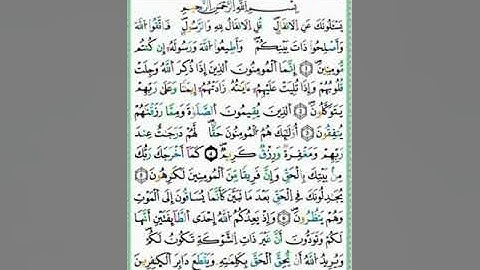 بِسْمِ اللَّهِ الرَّحْمَٰنِ الرَّحِيمِ
يَسْـَٔلُونَكَ عَنِ الْأَنفَالِ قُلِ الْأَنفَالُ لِلَّهِ وَالرَّسُولِ فَاتَّقُوا اللَّهَ
وَأَصْلِحُوا ذَاتَ بَيْنِكُمْ وَأَطِيعُوا اللَّهَ وَرَسُولَهُ إِن كُنتُم
مُّومِنِينَ ١ إِنَّمَا الْمُومِنُونَ الَّذِينَ إِذَا ذُكِرَ اللَّهُ وَجِلَتْ
قُلُوبُهُمْ وَإِذَا تُلِيَتْ عَلَيْهِمْ ءَايَٰتُهُ زَادَتْهُمْ إِيمَٰنًا وَعَلَىٰ رَبِّهِمْ
يَتَوَكَّلُونَ ٢ الَّذِينَ يُقِيمُونَ الصَّلَوٰةَ وَمِمَّا رَزَقْنَٰهُمْ
يُنفِقُونَ ٣ أُوْلَٰئِكَ هُمُ الْمُومِنُونَ حَقًّا لَّهُمْ دَرَجَٰتٌ عِندَ
رَبِّهِمْ وَمَغْفِرَةٌ وَرِزْقٌ كَرِيمٌ ٤ كَمَا أَخْرَجَكَ رَبُّكَ
مِن بَيْتِكَ بِالْحَقِّ وَإِنَّ فَرِيقًا مِّنَ الْمُومِنِينَ لَكَٰرِهُونَ ٥
يُجَٰدِلُونَكَ فِي الْحَقِّ بَعْدَ مَا تَبَيَّنَ كَأَنَّمَا يُسَاقُونَ إِلَى الْمَوْتِ
وَهُمْ يَنظُرُونَ ٦ وَإِذْ يَعِدُكُمُ اللَّهُ إِحْدَى الطَّائِفَتَيْنِ أَنَّهَا
لَكُمْ وَتَوَدُّونَ أَنَّ غَيْرَ ذَاتِ الشَّوْكَةِ تَكُونُ لَكُمْ
وَيُرِيدُ اللَّهُ أَن يُحِقَّ الْحَقَّ بِكَلِمَٰتِهِ وَيَقْطَعَ دَابِرَ الْكَٰفِرِينَ